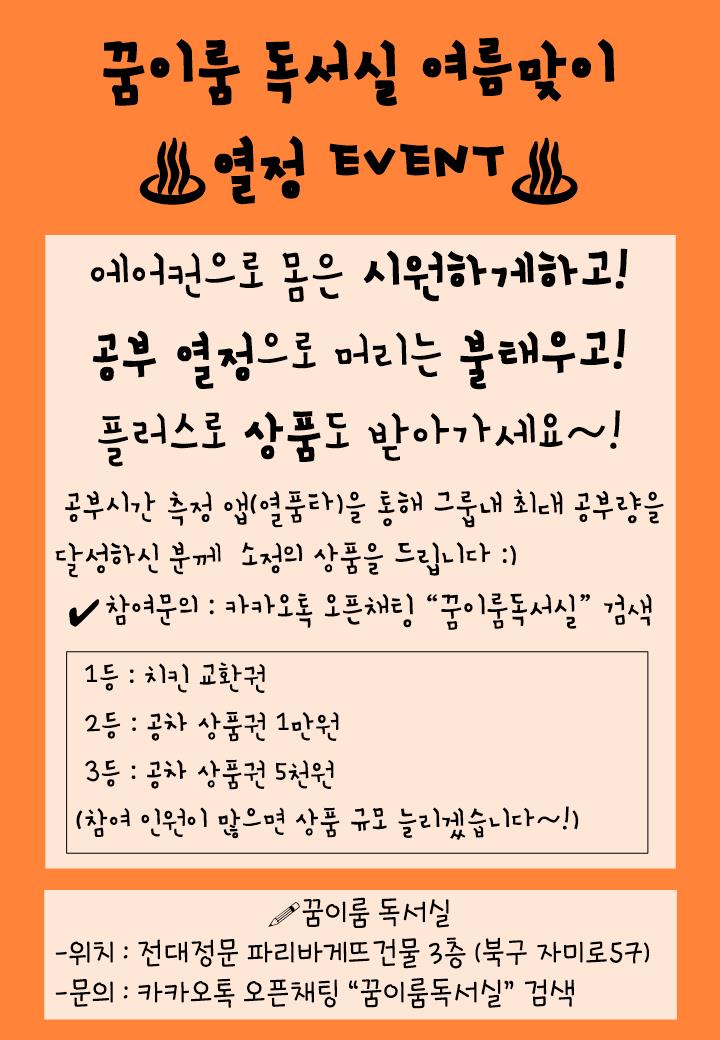 꿈이룸 독서실 여름맞이
열정 EVENT
에어컨으로 몸은 시원하게하고!
공부 열정으로 머리는 불태우고!
플러스로 상품도 받아가세요~!
공부시간 측정 앱(열품타)을 통해 그룹내 최대 공부량을
달성하신 분께 소정의 상품을 드립니다 :)
✔참여문의 : 카카오톡 오픈채팅 “꿈이룸독서실” 검색
1등 : 치킨 교환권
2등 : 공차 상품권 1만원
3등 : 공차 상품권 5천원
(참여 인원이 많으면 상품 규모 늘리겠습니다~!)
꿈이룸 독서실
-위치 : 전대정문 파리바게뜨건물 3층 (북구 자미로57)
-문의 : 카카오톡 오픈채팅 “꿈이룸독서실” 검색